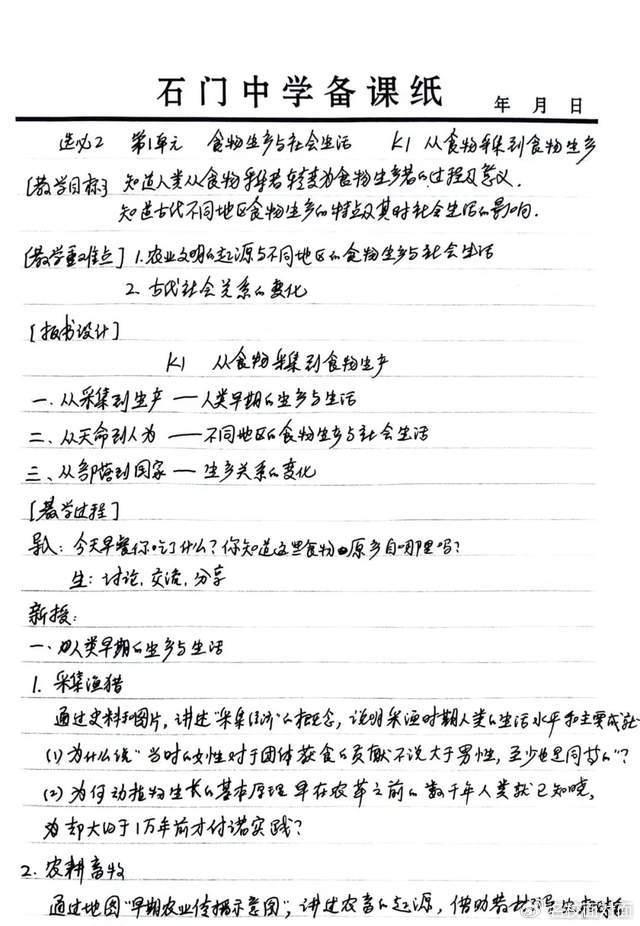 石门中学备课纸 年 月 日
选必2 第1单元 食物生产与社会生活 K1 从食物采集到食物生产
[教学目标] 知道人类从食物采集者转变为食物生产者的过程及意义.
知道古代不同地区食物生产的特点及其对社会生活的影响.
[教学重难点] 1.农业文明的起源与不同地区的食物生产与社会生活
2. 古代社会关系的变化
[板书设计]
K1 从食物采集到食物生产
一.从采集到生产 — 人类早期的生产与生活
二、从天命到人为 — 不同地区的食物生产与社会生活
三、从部落到国家 — 生产关系的变化
[教学过程]
导入: 今天早餐你吃了什么?你知道这些食物原产自哪里吗?
生: 讨论,交流,分享
新授:
一、人类早期的生产与生活
1. 采集渔猎
通过史料和图片,讲述"采集经济"的概念,说明采渔时期人类的生活水平和主要成就
(1)为什么说"当时的女性对于团体获食的贡献不说大于男性,至少也是同等的"?
(2)为何动植物生长的基本原理早在农革之前的数千年人类就已知晓,
为却大约于1万年前才付诸实践?
2. 农耕畜牧
通过地图"早期农业传播示意图",讲述农畜的起源,借助教材